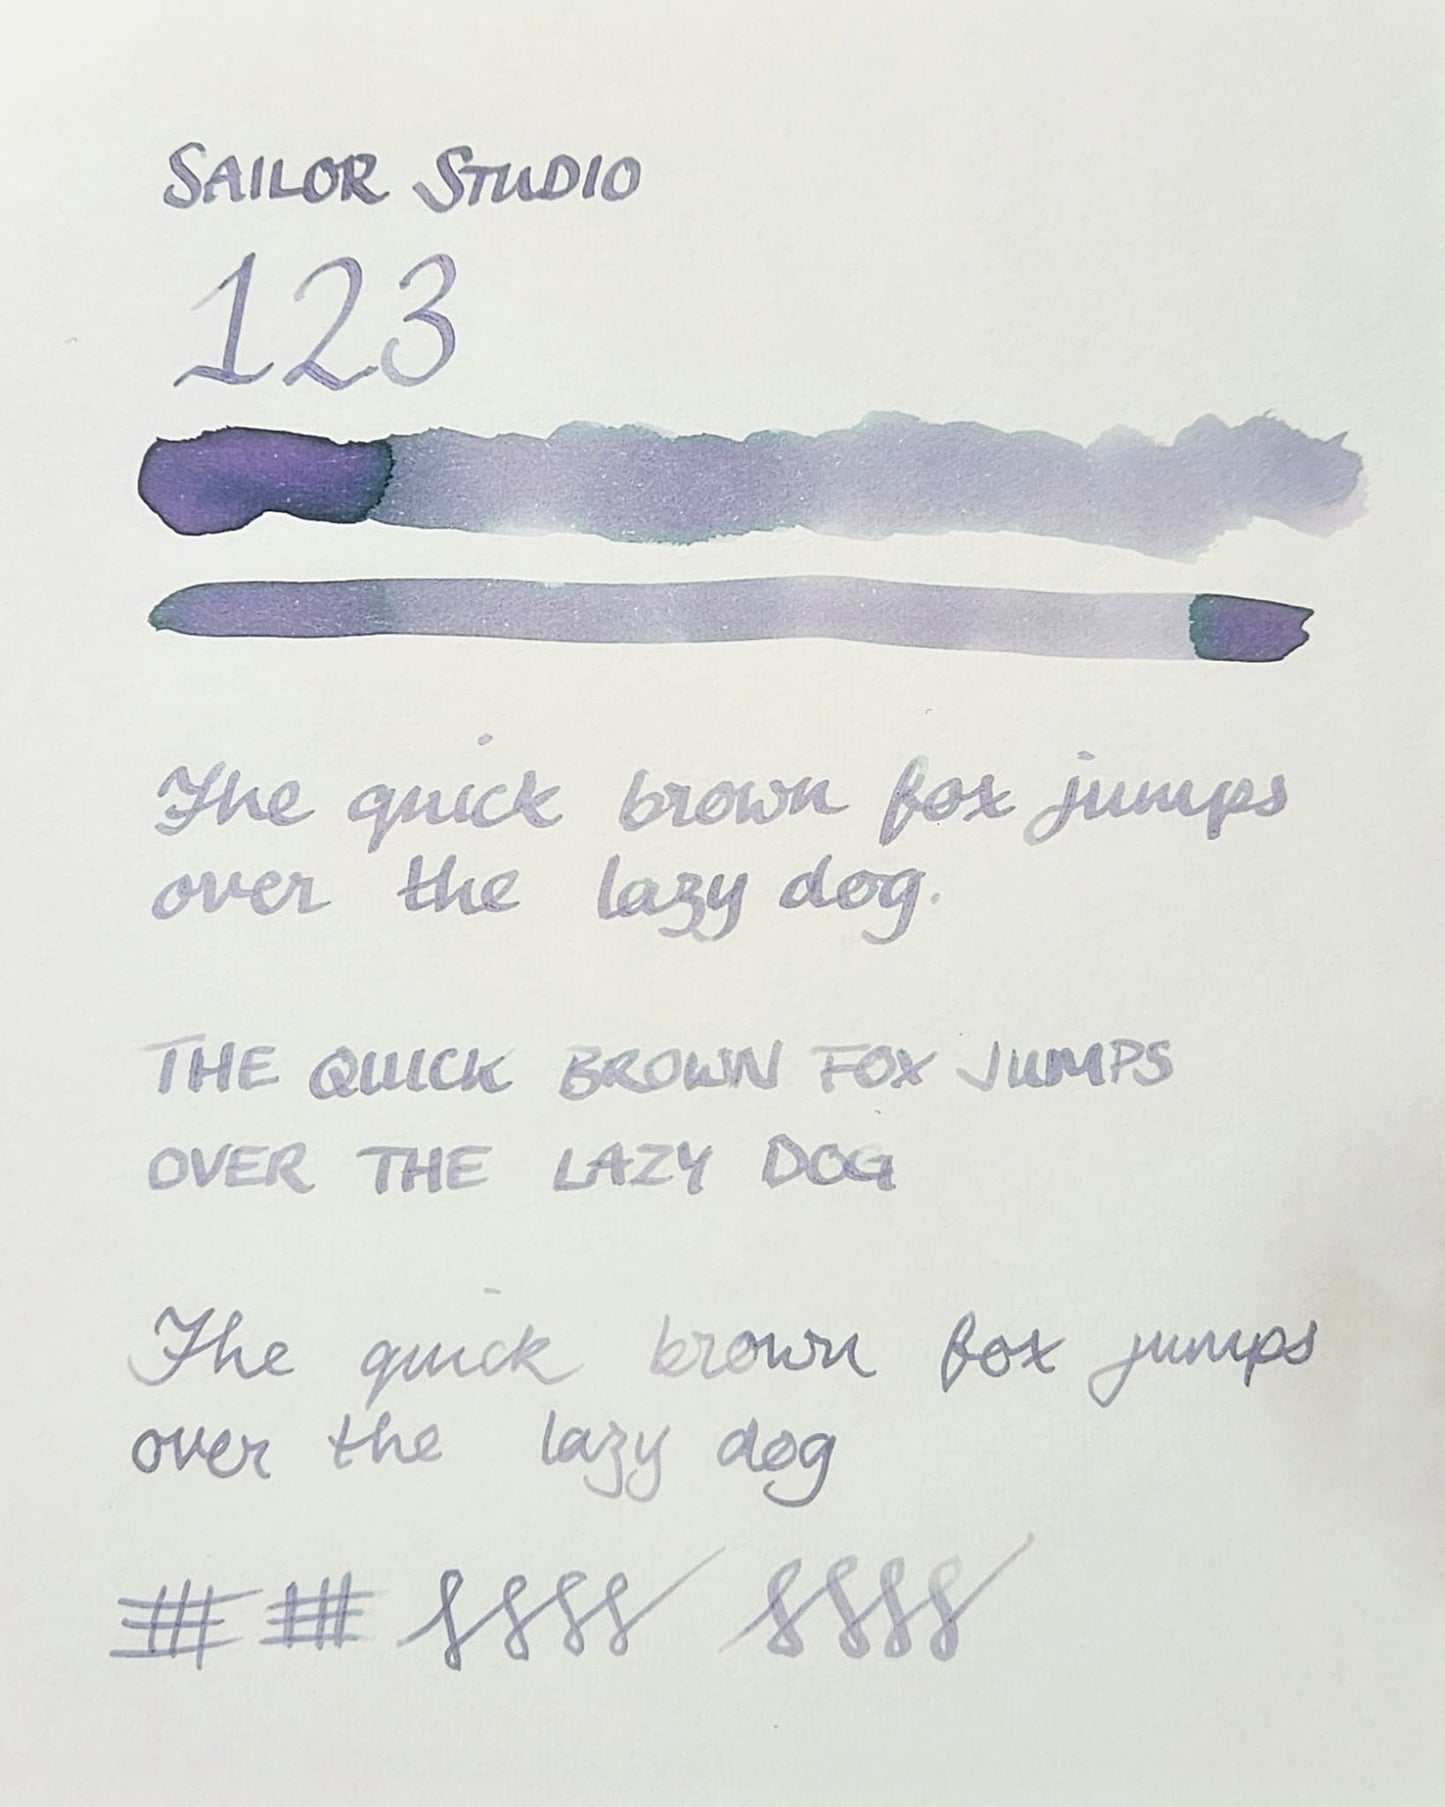 SAILOR STUDIO
123
The quick brown fox jumps
over the lazy dog.
THE QUICK BROWN FOX JUMPS
OVER THE LAZY DOG
The quick brown fox jumps
over the lazy dog